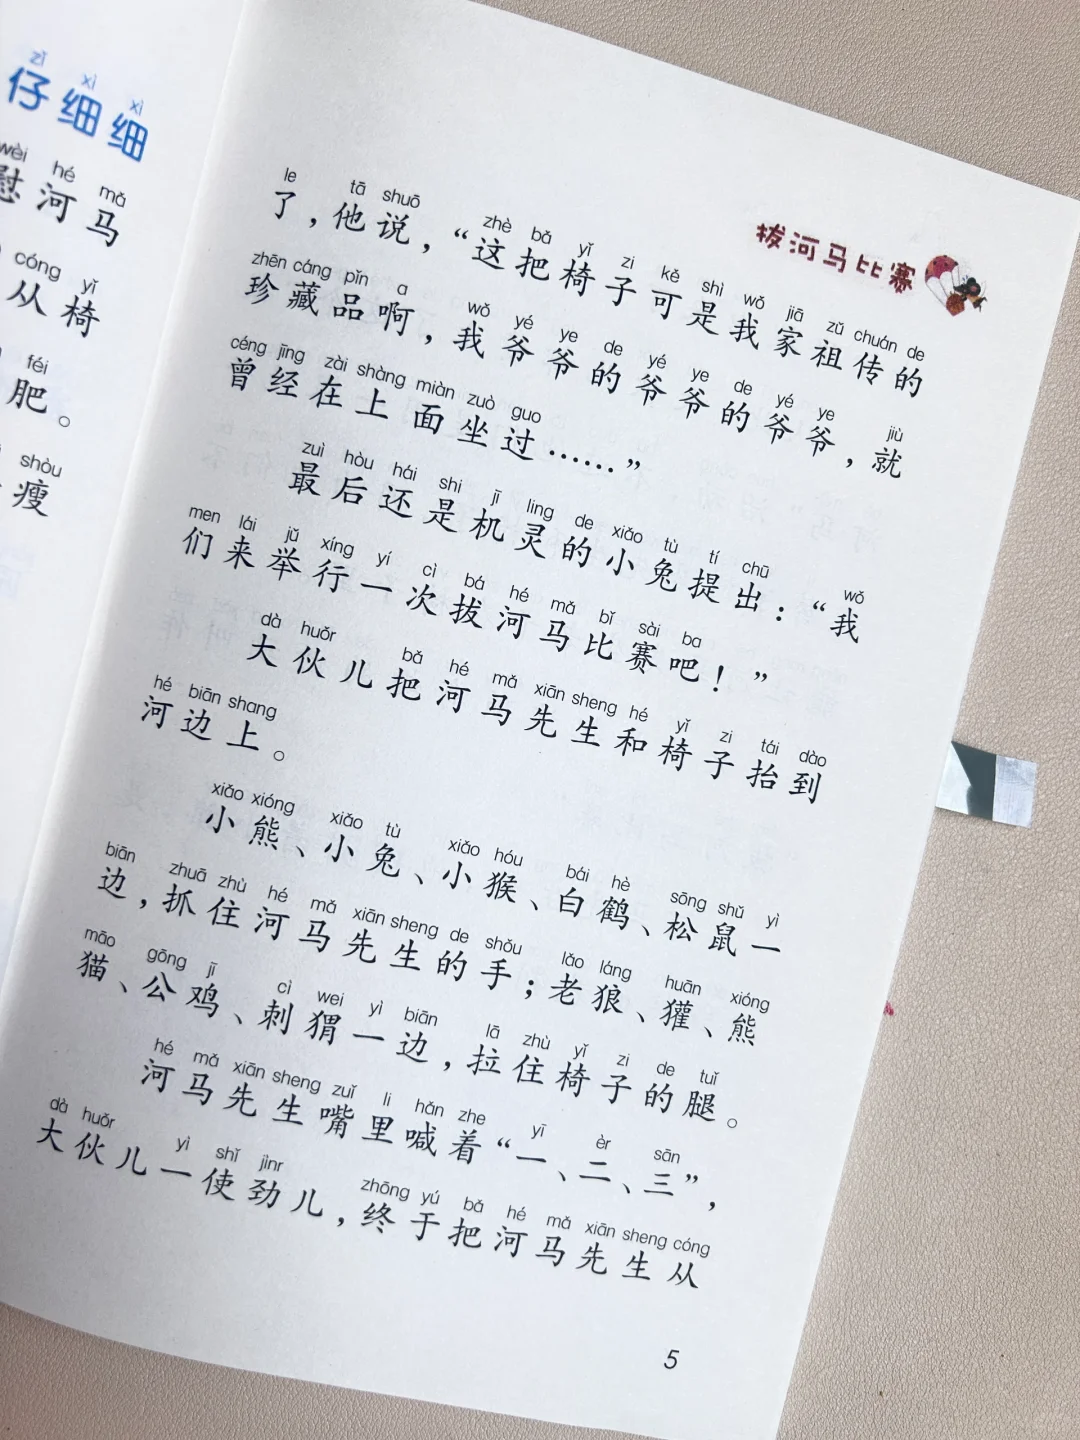 zǐ xì xì
仔细细
wèi hé mǎ
慰河马
cóng yǐ
从椅
féi
肥。
shòu
瘦
拔河马比赛
le tā shuō zhè bǎ yǐ zi kě shì wǒ jiā zǔ chuán de
了，他说，“这把椅子可是我家祖传的
zhēn cáng pǐn a wǒ yé ye de yé ye de yé ye jiù
珍藏品啊，我爷爷的爷爷的爷爷，就
céng jīng zài shàng miàn zuò guo
曾经在上面坐过……”
zuì hòu hái shi jī ling de xiǎo tù tí chū wǒ
最后还是机灵的小兔提出：“我
men lái jǔ xíng yí cì bá hé mǎ bǐ sài ba
们来举行一次拔河马比赛吧！”
dà huǒr bǎ hé mǎ xiān sheng hé yǐ zi tái dào
大伙儿把河马先生和椅子抬到
hé biān shang
河边上。
xiǎo xióng xiǎo tù xiǎo hóu bái hè sōng shǔ yì
小熊、小兔、小猴、白鹤、松鼠一
biān zhuā zhù hé mǎ xiān sheng de shǒu lǎo láng huān xióng
边，抓住河马先生的手；老狼、獾、熊
māo gōng jī cì wei yì biān lā zhù yǐ zi de tuǐ
猫、公鸡、刺猬一边，拉住椅子的腿。
hé mǎ xiān sheng zuǐ li hǎn zhe yī èr sān
河马先生嘴里喊着“一、二、三”，
dà huǒr yì shǐ jìnr zhōng yú bǎ hé mǎ xiān sheng cóng
大伙儿一使劲儿，终于把河马先生从
5